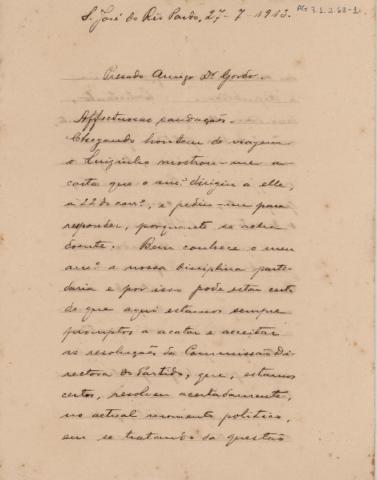 AG 3.1.2.68-1
S. José do Rio Pardo, 27-7-1913.
Presado Amigo Dr.
Affectuosas saudações.
Chegando hontem de viagem
o Luizinho mostrou-me a
carta que o am.º dirigiu a elle,
a 22 do corr.º, e pediu-me para
responder, porquanto se acha
doente. Bem conhece o meu
am.º a nossa disciplina parti-
daria e por isso pode estar certo
de que aqui estamos sempre
promptos a acatar e acceitar
as resoluções da Commissão Di-
rectora do Partido, que, estamos
certos, resolveu acertadamente,
no actual momento politico,
em se tratando da questão